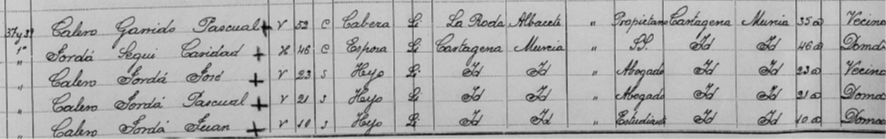 37 y 39 Calero Garrido Pascual + V 52 C Cabeza Si La Roda Albacete " Propietario Cartagena Murcia 35 a Vecino
1º Jordá Segui Caridad + H 46 C Esposa Si Cartagena Murcia " SS. Id Id 46 a Domda
" Calero Jordá José + V 23 S Hijo Si Id Id " Abogado Id Id 23 a Vecino
" Calero Jordá Pascual + V 21 S Hijo Si Id Id " Abogado Id Id 21 a Domdo
" Calero Jordá Juan + V 10 S Hijo Si Id Id " Estudiante Id Id 10 a Domdo